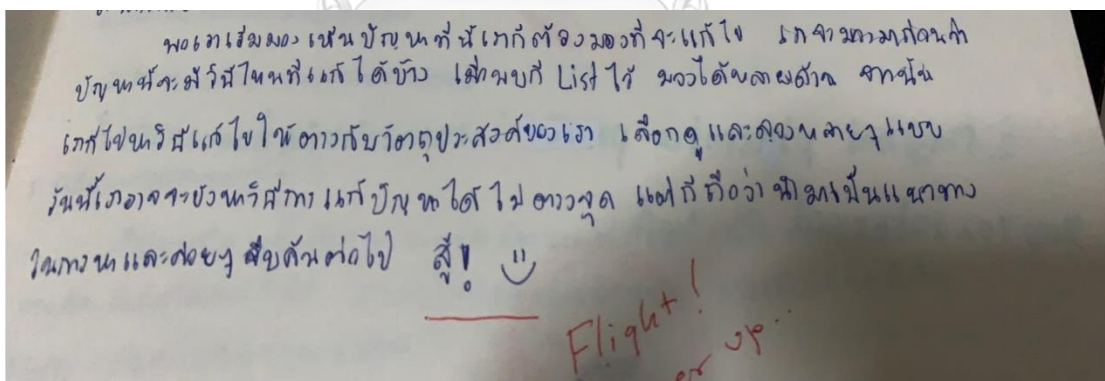 พอเราเริ่มมองเห็นปัญหาที่นี้เราก็ต้องมองที่จะแก้ไข เราจะมาก่อนว่า
ปัญหานี้จะมีวิธีไหนที่แก้ได้บ้าง เมื่อพบก็ List ไว้ มองได้หลายด้าน จากนั้น
เราก็ไปหาวิธีแก้ไขให้ตรงกับวัตถุประสงค์ของเรา เลือกดูและลองหลายๆแบบ
วันนี้เราอาจจะยังหาวิธีการแก้ปัญหาได้ไม่ตรงจุด แต่ก็ถือว่านำมาเป็นแนวทาง
ในการหาและค่อยๆสืบค้นต่อไป สู้!
Flight!
up..